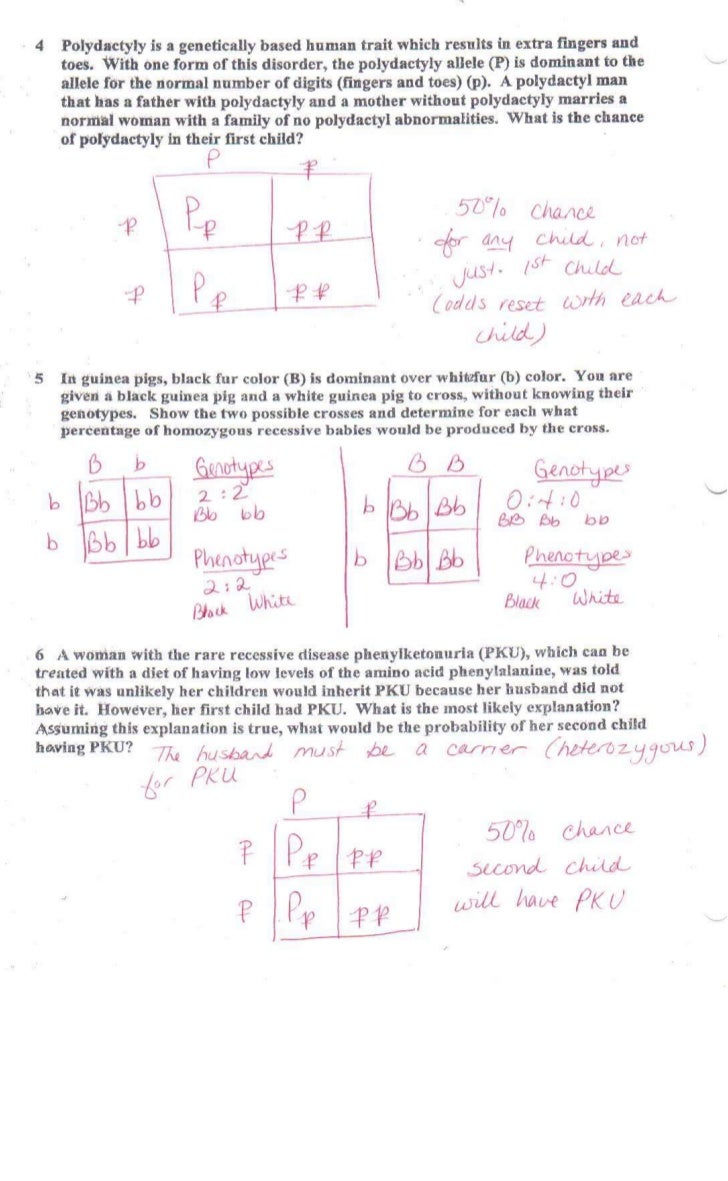 4 Polydactyly is a genetically based human trait which results in extra fingers and
toes. With one form of this disorder, the polydactyly allele (P) is dominant to the
allele for the normal number of digits (fingers and toes) (p). A polydactyl man
that has a father with polydactyly and a mother without polydactyly marries a
normal woman with a family of no polydactyl abnormalities. What is the chance
of polydactyly in their first child?
P p
p Pp pp
p Pp pp
50% chance
for any child, not
just 1st child
(odds reset with each
child)
5 In guinea pigs, black fur color (B) is dominant over white fur (b) color. You are
given a black guinea pig and a white guinea pig to cross, without knowing their
genotypes. Show the two possible crosses and determine for each what
percentage of homozygous recessive babies would be produced by the cross.
B b
b Bb bb
b Bb bb
Genotypes
2 : 2
Bb bb
Phenotypes
2 : 2
Black White
B B
b Bb Bb
b Bb Bb
Genotypes
0:4:0
BB Bb bb
Phenotypes
4:0
Black White
6 A woman with the rare recessive disease phenylketonuria (PKU), which can be
treated with a diet of having low levels of the amino acid phenylalanine, was told
that it was unlikely her children would inherit PKU because her husband did not
have it. However, her first child had PKU. What is the most likely explanation?
Assuming this explanation is true, what would be the probability of her second child
having PKU? The husband must be a carrier (heterozygous)
for PKU
P p
p Pp pp
p Pp pp
50% chance
second child
will have PKU